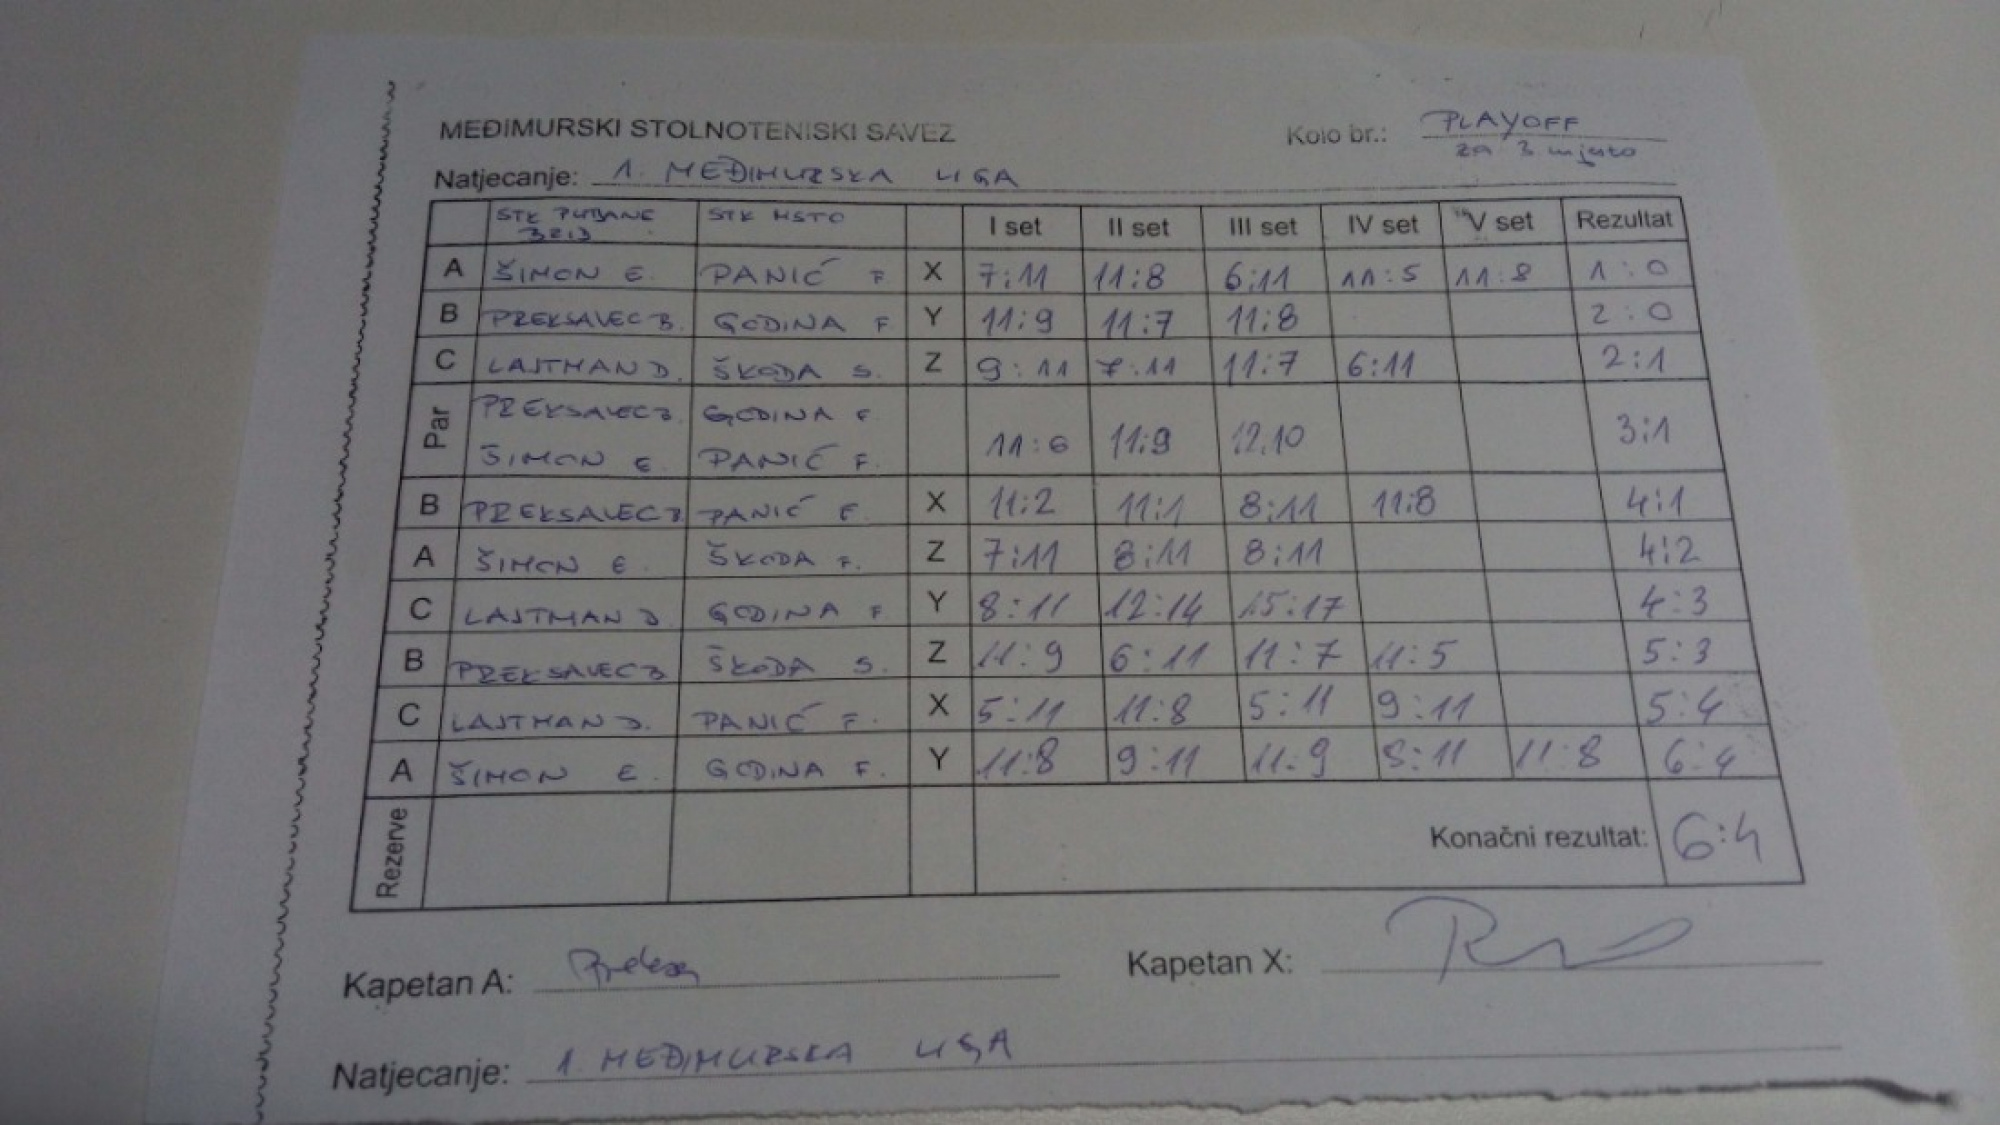 MEĐIMURSKI STOLNOTENISKI SAVEZ Kolo br.: PLAYOFF
za 3. mjesto
Natjecanje: 1. MEĐIMURSKA LIGA
STK PUŠĆINE STK MSTO I set II set III set IV set V set Rezultat
A ŠIMON E. PANIĆ F. X 7:11 11:8 6:11 11:5 11:8 1:0
B PREKSAVEC B. GODINA F. Y 11:9 11:7 11:8 2:0
C LAJTMAN D. ŠKODA S. Z 9:11 7:11 11:7 6:11 2:1
Par PREKSAVEC B. GODINA F.
ŠIMON E. PANIĆ F. 11:6 11:9 12:10 3:1
B PREKSAVEC B. PANIĆ F. X 11:2 11:1 8:11 11:8 4:1
A ŠIMON E. ŠKODA F. Z 7:11 8:11 8:11 4:2
C LAJTMAN D. GODINA F. Y 8:11 12:14 15:17 4:3
B PREKSAVEC B. ŠKODA S. Z 11:9 6:11 11:7 11:5 5:3
C LAJTMAN D. PANIĆ F. X 5:11 11:8 5:11 9:11 5:4
A ŠIMON E. GODINA F. Y 11:8 9:11 11:9 8:11 11:8 6:4
Rezerve Konačni rezultat: 6:4
Kapetan A: Kapetan X:
Natjecanje: 1. MEĐIMURSKA LIGA